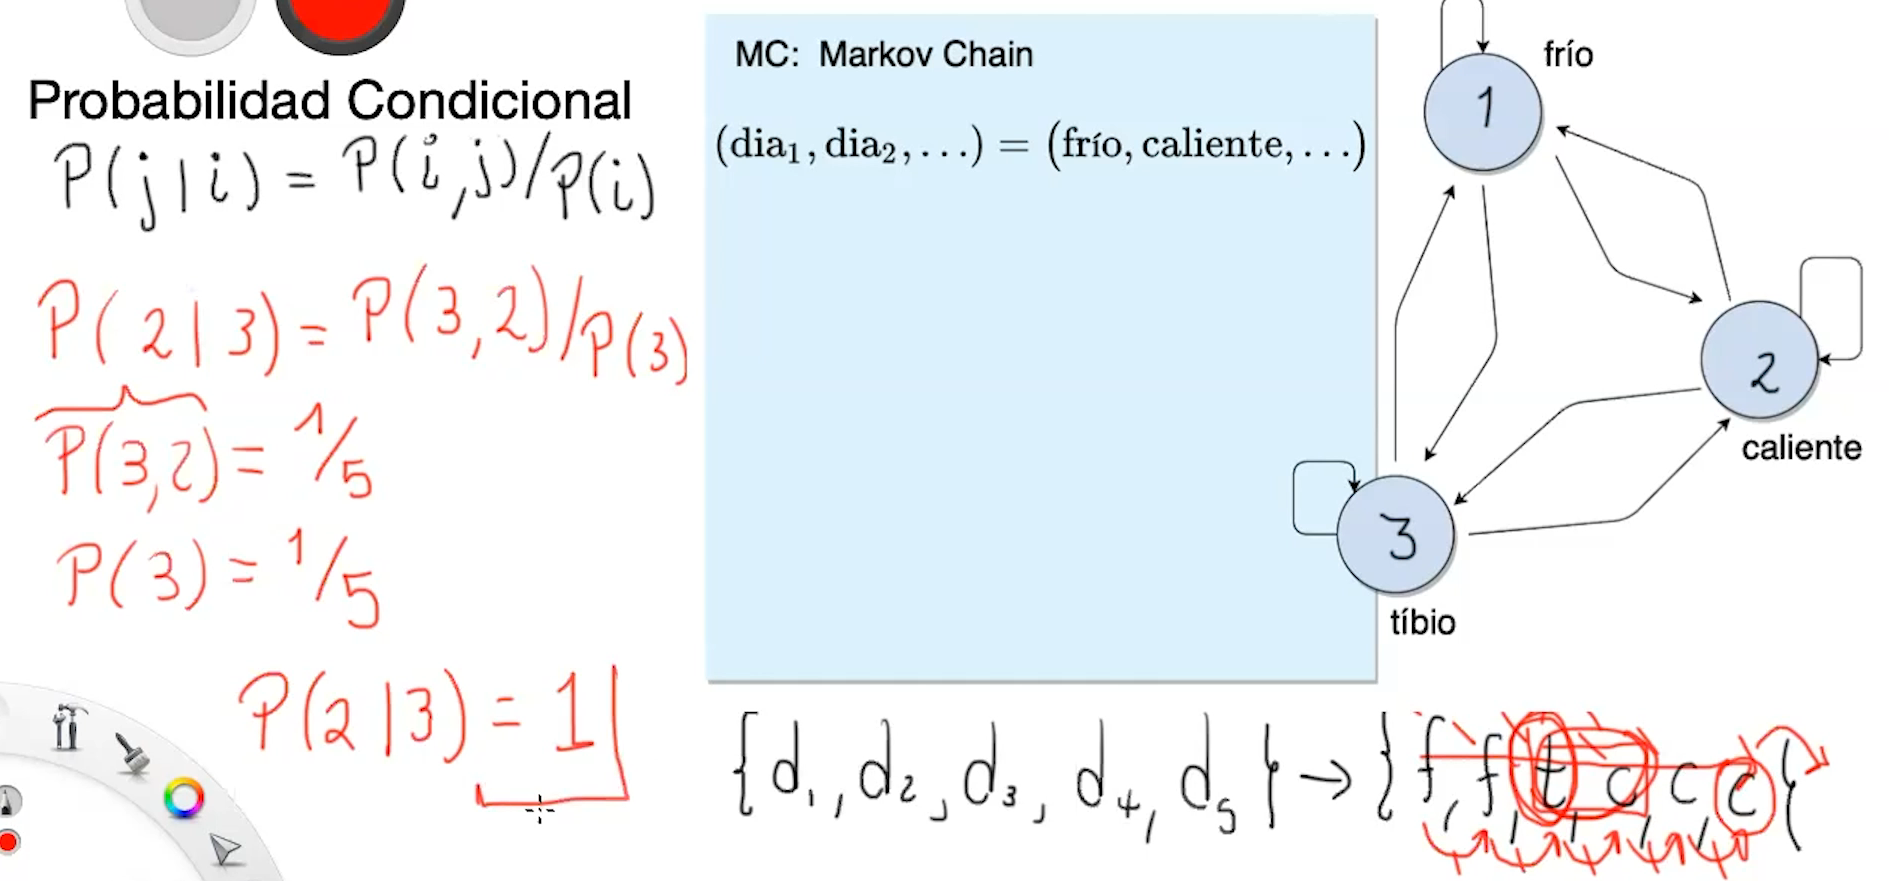 Probabilidad Condicional
P(j|i) = P(i,j)/P(i)
P(2|3) = P(3,2)/P(3)
P(3,2) = 1/5
P(3) = 1/5
P(2|3) = 1
MC: Markov Chain
(dia₁, dia₂, …) = (frío, caliente, …)
1
frío
2
caliente
3
tíbio
{d₁, d₂, d₃, d₄, d₅} → {f, f, t, c, c, c}